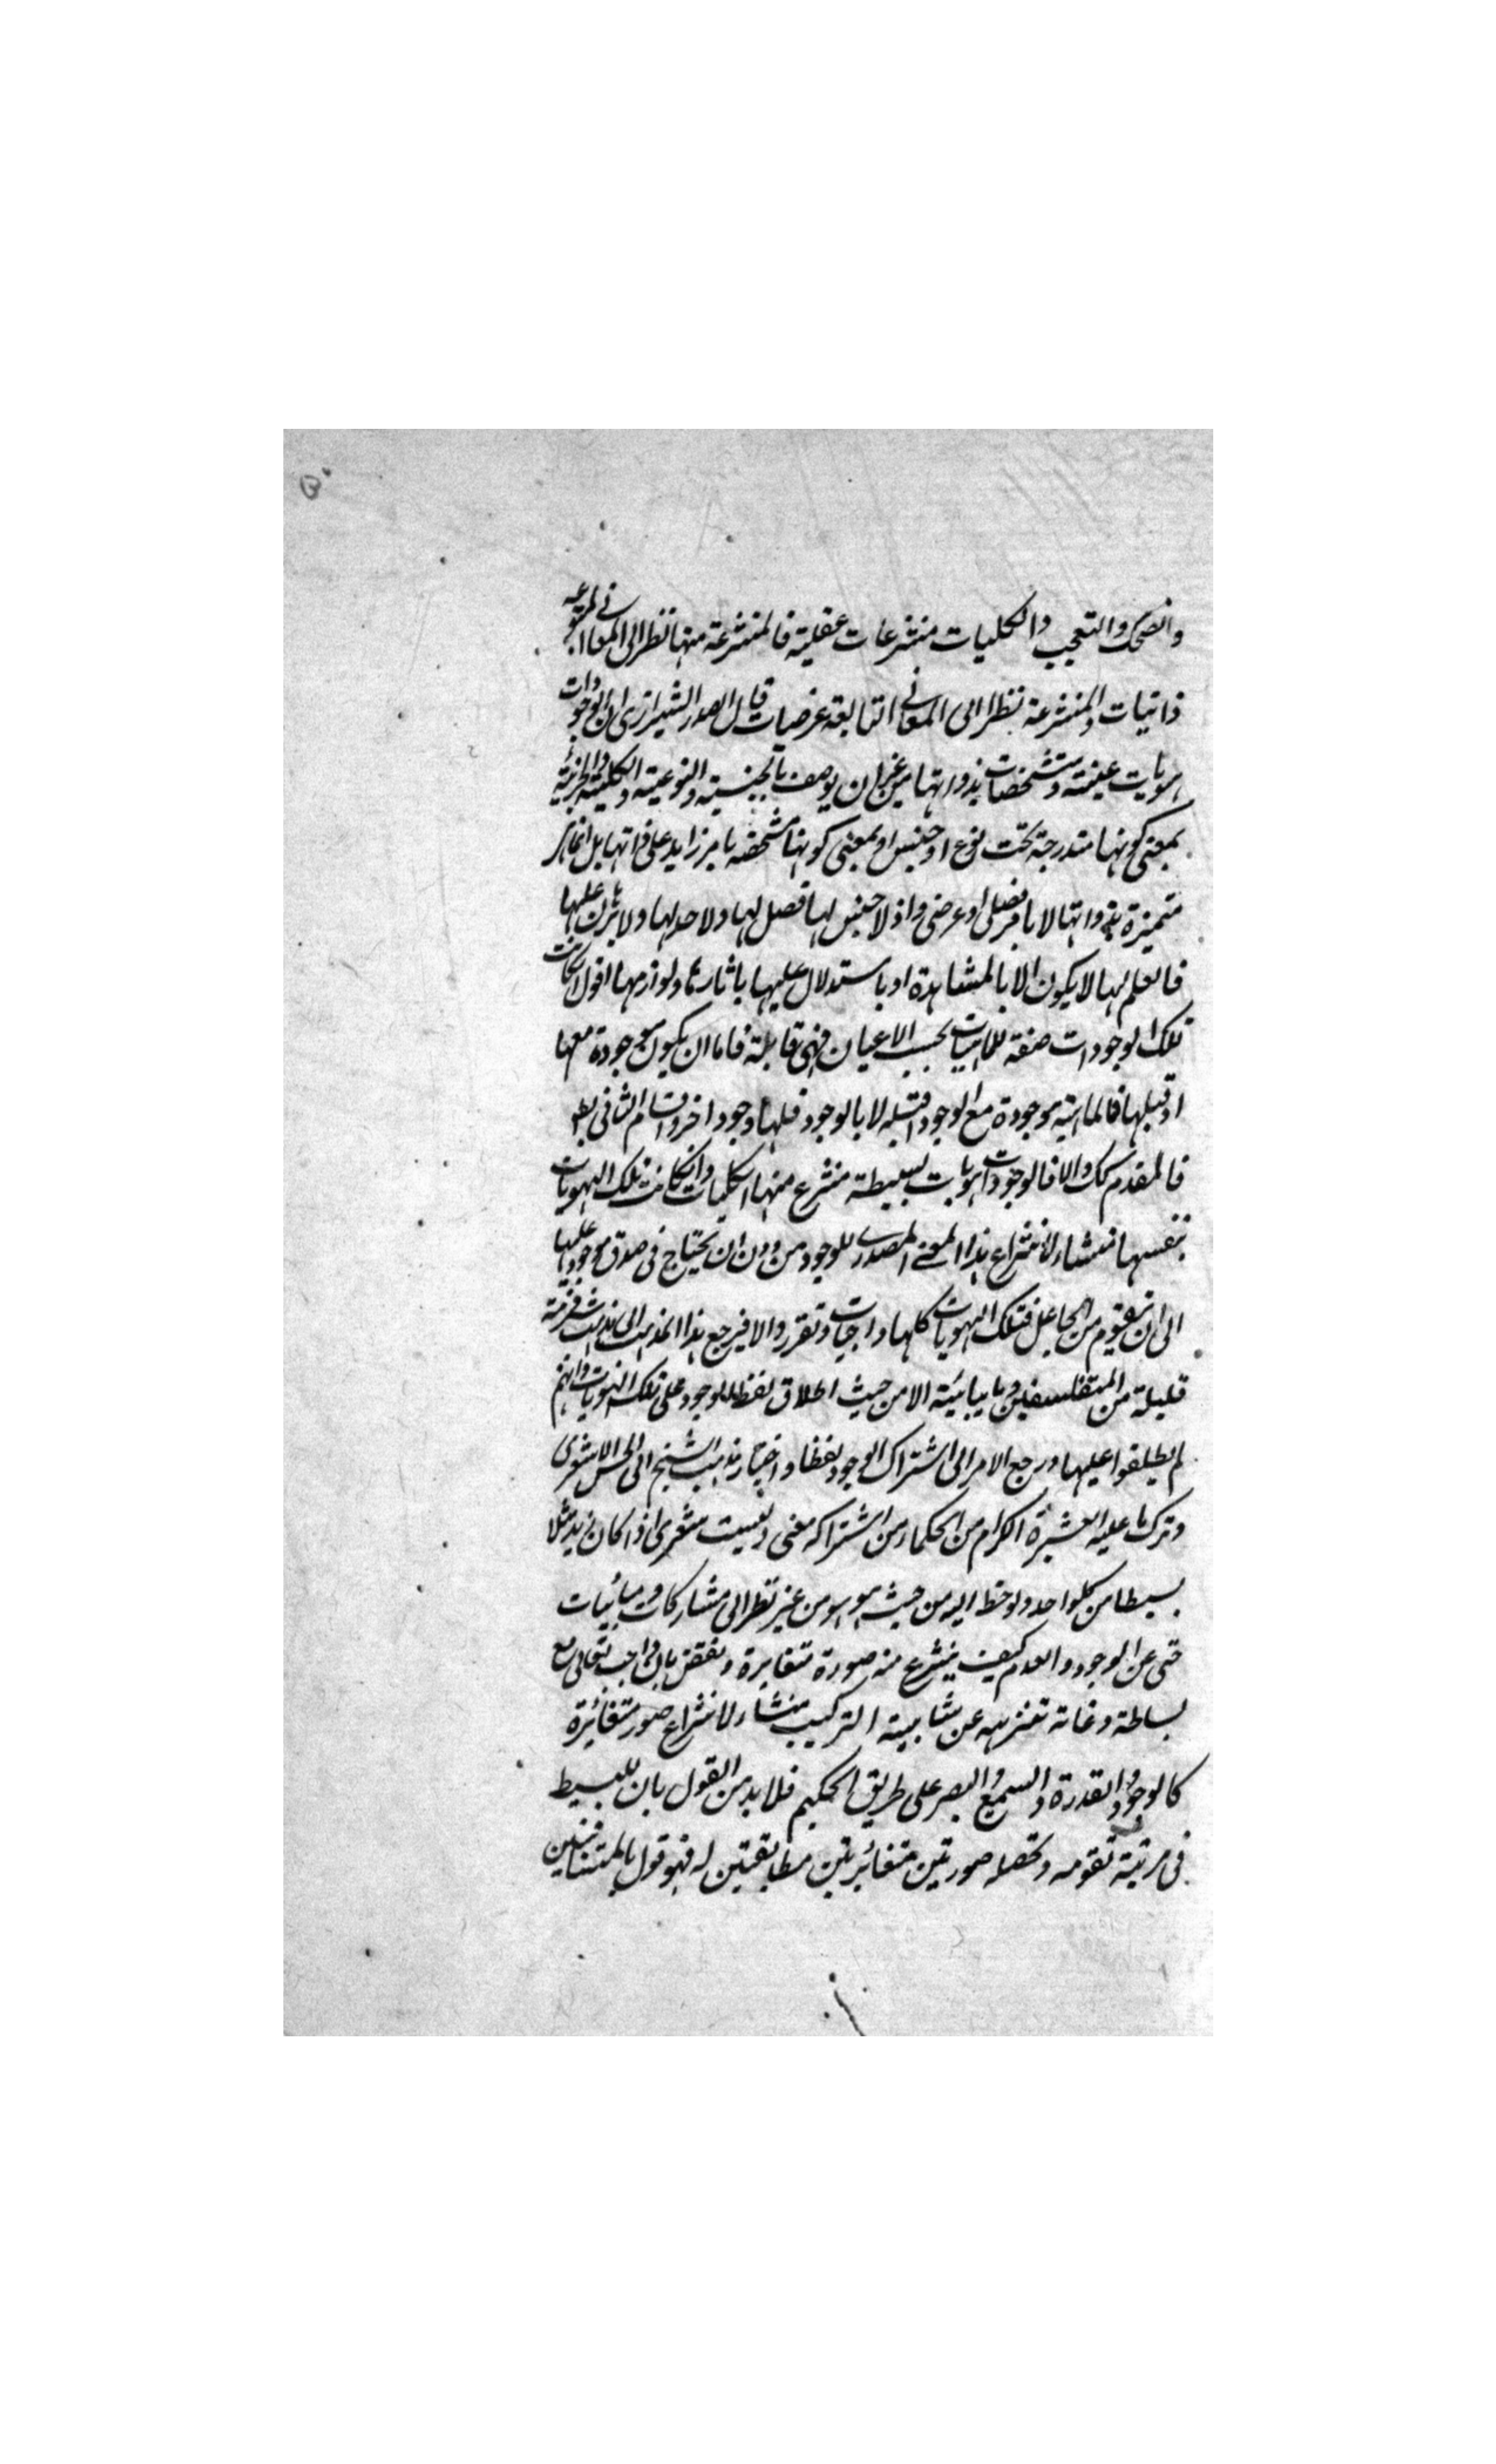 والضحك والتعجب والكليات منتزعات عقلية فالمنتزعة منها نظرا الى المعانى المتبوعة
ذاتيات والمنتزعة نظرا الى المعانى التابعة عرضيات قال الصدر الشيرازى ان الوجودات
هويات عينية ومتشخصات بذواتها من غير ان يوصف بالجنسية والنوعية والكلية والجزئية
بمعنى كونها مندرجة تحت نوع او جنس او بمعنى كونها متشخصة بامر زايد على ذاتها بل انما هى
متميزة بذواتها لا بامر فصلى او عرضى واذ لا جنس لها فصل لها ولا حد لها ولا برهان عليها
فالعلم بها لا يكون الا بالمشاهدة او باستدلال عليها باثارها ولوازمها اقول ان كانت
تلك الوجودات صفة للماهيات بحسب الاعيان فهى قابلة فاما ان يكون موجودة معها
او قبلها فالماهية موجودة مع الوجود او قبله لا بالوجود فلها وجود اخر واقسام التالى بط
فالمقدم كك والا فالوجودات هويات بسيطة منتزع منها الكليات وان كانت تلك الهويات
بنفسها منشاء لانتزاع هذا المعنى المصدرى للوجود من دون ان يحتاج فى صدق موجود عليها
الى ان تتقوم من الجاعل فتلك الهويات كلها واجبات وتقرر والا فيرجع هذا المذهب الى مذهب شرذمة
قليلة من المتفلسفين وما يباينه الا من حيث اطلاق لفظ الوجود على تلك الهويات وانهم
لم يطلقوا عليها ورجع الامر الى اشتراك الوجود لفظا واختار مذهب الشيخ ابى الحسن الاشعرى
وترك ما عليه العشيرة الكرام من الحكماء من اشتراكه معنى وليت شعرى اذا كان زيد مثلا
بسيطا من كل واحد ولوحظ اليه من حيث هو هو من غير نظر الى مشاركات ومباينات
حتى عن الوجود والعدم كيف ينتزع منه صورة متغايرة ونقض بان الواجب تعالى مع
بساطة وغاية تنزيهه عن شايبة التركيب منشاء لانتزاع صور متغائرة
كالوجود والقدرة والسمع والبصر على طريق الحكيم فلا بد من القول بان للبسيط
فى مرتبة تقومه وتحصله صورتين متغائرتين مطابقتين له فهو قول بالمتنافيين